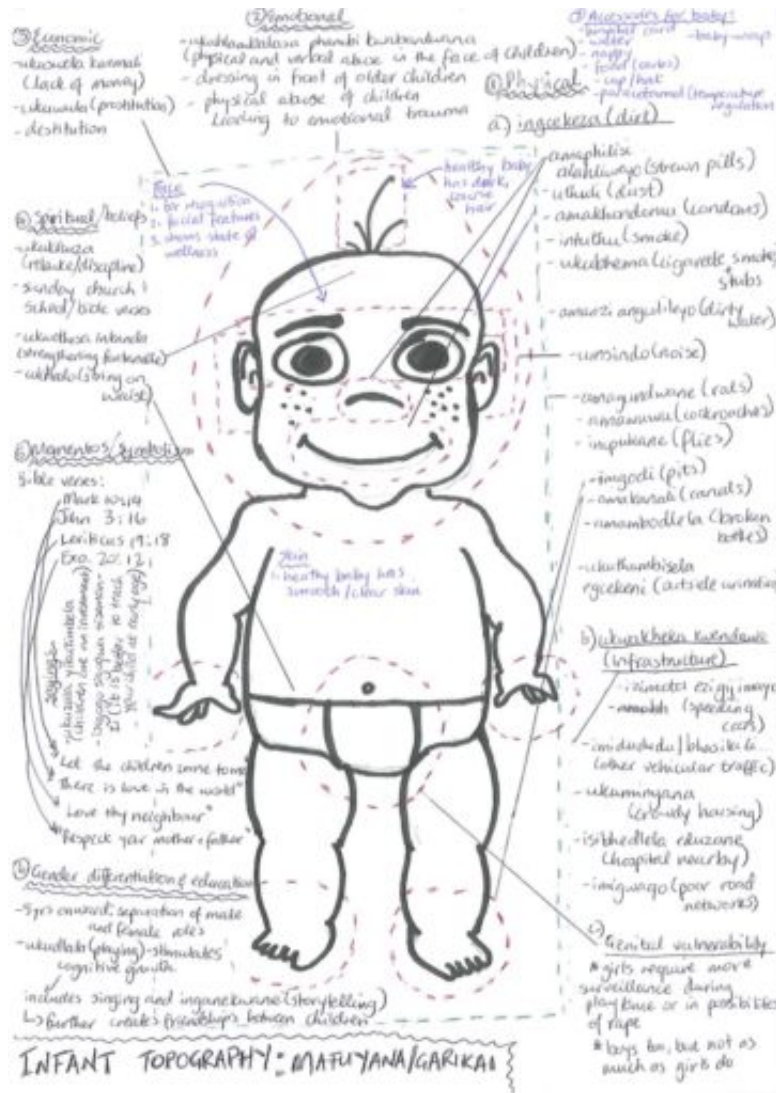 ③ Economic
- ukuswela kwemali
(lack of money)
- ukuwula (prostitution)
- destitution
② Emotional
- ukuhlambalaza phambi kwabantwana
(physical and verbal abuse in the face of children)
- dressing in front of older children
- physical abuse of children
leading to emotional trauma
Accessories for baby:
- hospital card
- baby-wraps
- water
- nappy
- food (carbs)
- cap/hat
- paracetamol (temperature
regulation
① Physical
a) ingcekeza (dirt)
amaphilisi
alahliweyo (strewn pills)
- uthuli (dust)
- amakhondomu (condoms)
- intuthu (smoke)
- ukubhema (cigarette smoke,
stubs
- amanzi angcolileyo (dirty
water)
- umsindo (noise)
- amagundwane (rats)
- amawuwu (cockroaches)
- impukane (flies)
- imigodi (pits)
- amakanali (canals)
- amambodlela (broken
bottles)
- ukuthambisela
egcekeni (outside urinating
b) ukwakheka kwendawo
(infrastructure)
- izimota ezigijimayo
(speeding
cars)
- imidududu/bhasikili
(other vehicular traffic)
- ukuminyana
(crowdy housing)
- isibhedlela eduzane
(hospital nearby)
- imigwaqo (poor road
networks)
c) Genital vulnerability
* girls require more
surveillance during
playtime or in possibilities
of rape
* boys too, but not as
much as girls do
Face
1.
2. facial features
3. shows state of
wellness
healthy baby
has dark,
course
hair
④ Spiritual/beliefs
- ukukhuza
(rebuke/discipline)
- sunday church
school/bible verses
- ukuqinisa inkanda
(strengthening fontanelle)
- (string on
waist)
⑤ Mementos/Symbolism
Bible verses:
Mark 10:14
John 3:16
Leviticus 19:18
Exo. 20:12
(children are an investment)
(It is better to teach
your child at early age)
"Let the children come to me"
"There is love in the world"
"Love thy neighbour"
"Respect your mother + father"
Skin
- healthy baby has
smooth/clear skin
⑥ Gender differentiation & education
- 5yrs onward, separation of male
and female roles
- ukudlala (playing) - stimulates
cognitive growth
includes singing and inganekwane (storytelling)
↳ further creates friendships between children
INFANT TOPOGRAPHY: MAFUYANA/GARIKAI